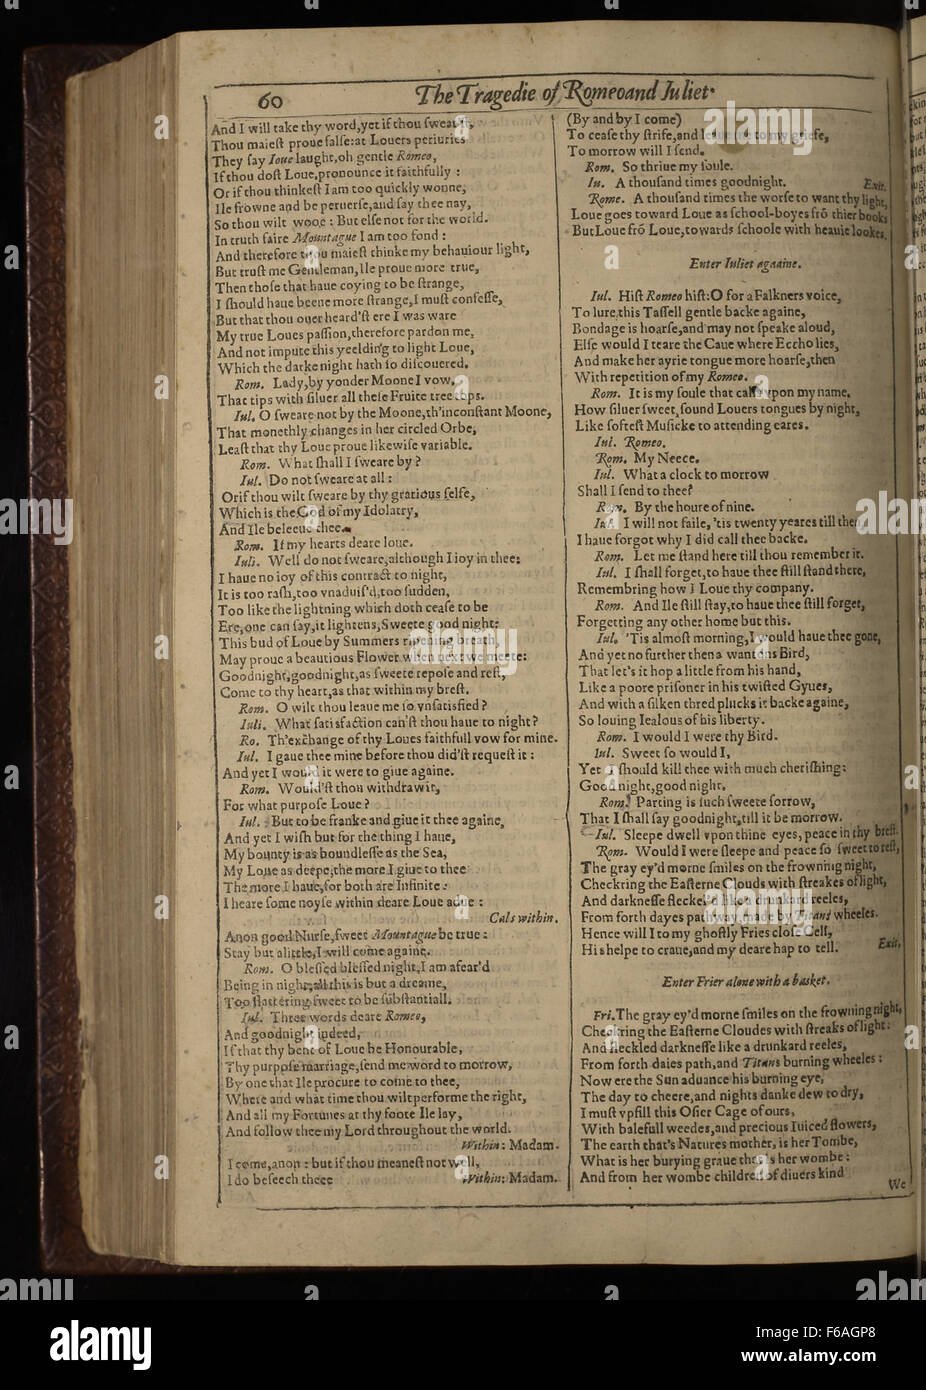 60
The Tragedie of Romeo and Iuliet.
And I will take thy word, yet if thou swear'st,
Thou maiest proue false: at Louers periuries
They say Ioue laught, oh gentle Romeo,
If thou dost Loue, pronounce it faithfully :
Or if thou thinkest I am too quickly wonne,
Ile frowne and be peruerse, and say thee nay,
So thou wilt wooe : But else not for the world.
In truth faire Mountague I am too fond :
And therefore thou maiest thinke my behauiour light,
But trust me Gentleman, Ile proue more true,
Then those that haue coying to be strange,
I should haue beene more strange, I must confesse,
But that thou ouer heard'st ere I was ware
My true Loues passion, therefore pardon me,
And not impute this yeelding to light Loue,
Which the darke night hath so discouered.
Rom. Lady, by yonder Moone I vow,
That tips with siluer all these Fruite tree tops.
Iul. O sweare not by the Moone, th'inconstant Moone,
That monethly changes in her circled Orbe,
Least that thy Loue proue likewise variable.
Rom. What shall I sweare by ?
Iul. Do not sweare at all :
Or if thou wilt sweare by thy gratious selfe,
Which is the God of my Idolatry,
And Ile beleeue thee.
Rom. If my hearts deare loue.
Iuli. Well do not sweare, although I ioy in thee:
I haue no ioy of this contract to night,
It is too rash, too vnaduis'd, too sudden,
Too like the lightning which doth cease to be
Ere, one can say, it lightens, Sweete good night:
This bud of Loue by Summers ripening breath,
May proue a beautious Flower when next we meete:
Goodnight, goodnight, as sweete repose and rest,
Come to thy heart, as that within my brest.
Rom. O wilt thou leaue me so vnsatisfied ?
Iuli. What satisfaction can'st thou haue to night?
Ro. Th'exchange of thy Loues faithfull vow for mine.
Iul. I gaue thee mine before thou did'st request it :
And yet I would it were to giue againe.
Rom. Would'st thou withdraw it,
For what purpose Loue ?
Iul. But to be franke and giue it thee againe,
And yet I wish but for the thing I haue,
My bounty is as boundlesse as the Sea,
My Loue as deepe, the more I giue to thee
The more I haue, for both are Infinite :
I heare some noyse within deare Loue adue :
Cals within.
Anon good Nurse, sweet Mountague be true :
Stay but a little, I will come againe.
Rom. O blessed blessed night, I am afear'd
Being in night, all this is but a dreame,
Too flattering sweet to be substantiall.
Iul. Three words deare Romeo,
And goodnight indeed,
If that thy bent of Loue be Honourable,
Thy purpose marriage, send me word to morrow,
By one that Ile procure to come to thee,
Where and what time thou wilt performe the right,
And all my Fortunes at thy foote Ile lay,
And follow thee my Lord throughout the world.
Within: Madam.
I come, anon : but if thou meanest not well,
I do beseech theee
Within: Madam.
(By and by I come)
To cease thy strife, and leaue me to my griefe,
To morrow will I send.
Rom. So thriue my soule.
Iu. A thousand times goodnight.
Exit.
Rome. A thousand times the worse to want thy light,
Loue goes toward Loue as school-boyes frõ thier books
But Loue frõ Loue, towards schoole with heauie lookes.
Enter Iuliet agaaine.
Iul. Hist Romeo hist: O for a Falkners voice,
To lure this Tassell gentle backe againe,
Bondage is hoarse, and may not speake aloud,
Else would I teare the Caue where Eccho lies,
And make her ayrie tongue more hoarse, then
With repetition of my Romeo.
Rom. It is my soule that calls vpon my name.
How siluer sweet, found Louers tongues by night,
Like softest Musicke to attending eares.
Iul. Romeo.
Rom. My Neece.
Iul. What a clock to morrow
Shall I send to thee?
Rom. By the houre of nine.
Iul. I will not faile, 'tis twenty yeares till then
I haue forgot why I did call thee backe.
Rom. Let me stand here till thou remember it.
Iul. I shall forget, to haue thee still stand there,
Remembring how I Loue thy company.
Rom. And Ile still stay, to haue thee still forget,
Forgetting any other home but this.
Iul. 'Tis almost morning, I would haue thee gone,
And yet no further then a wantons Bird,
That let's it hop a little from his hand,
Like a poore prisoner in his twisted Gyues,
And with a silken thred plucks it backe againe,
So louing Iealous of his liberty.
Rom. I would I were thy Bird.
Iul. Sweet so would I,
Yet I should kill thee with much cherishing:
Good night, good night.
Rom. Parting is such sweete sorrow,
That I shall say goodnight, till it be morrow.
Iul. Sleepe dwell vpon thine eyes, peace in thy brest.
Rom. Would I were sleepe and peace so sweet to rest,
The gray ey'd morne smiles on the frowning night,
Checkring the Easterne Clouds with streakes of light,
And darknesse fleckel'd like a drunkard reeles,
From forth dayes pathway, made by Titans wheeles.
Hence will I to my ghostly Fries close Cell,
His helpe to craue, and my deare hap to tell.
Exit.
Enter Frier alone with a basket.
Fri. The gray ey'd morne smiles on the frowning night,
Checkring the Easterne Cloudes with streaks of light:
And fleckled darknesse like a drunkard reeles,
From forth daies path, and Titans burning wheeles :
Now ere the Sun aduance his burning eye,
The day to cheere, and nights danke dew to dry,
I must vpfill this Osier Cage of ours,
With balefull weedes, and precious Iuiced flowers,
The earth that's Natures mother, is her Tombe,
What is her burying graue that is her wombe :
And from her wombe children of diuers kind
We
alamy
Image ID: F6AGP8
www.alamy.com